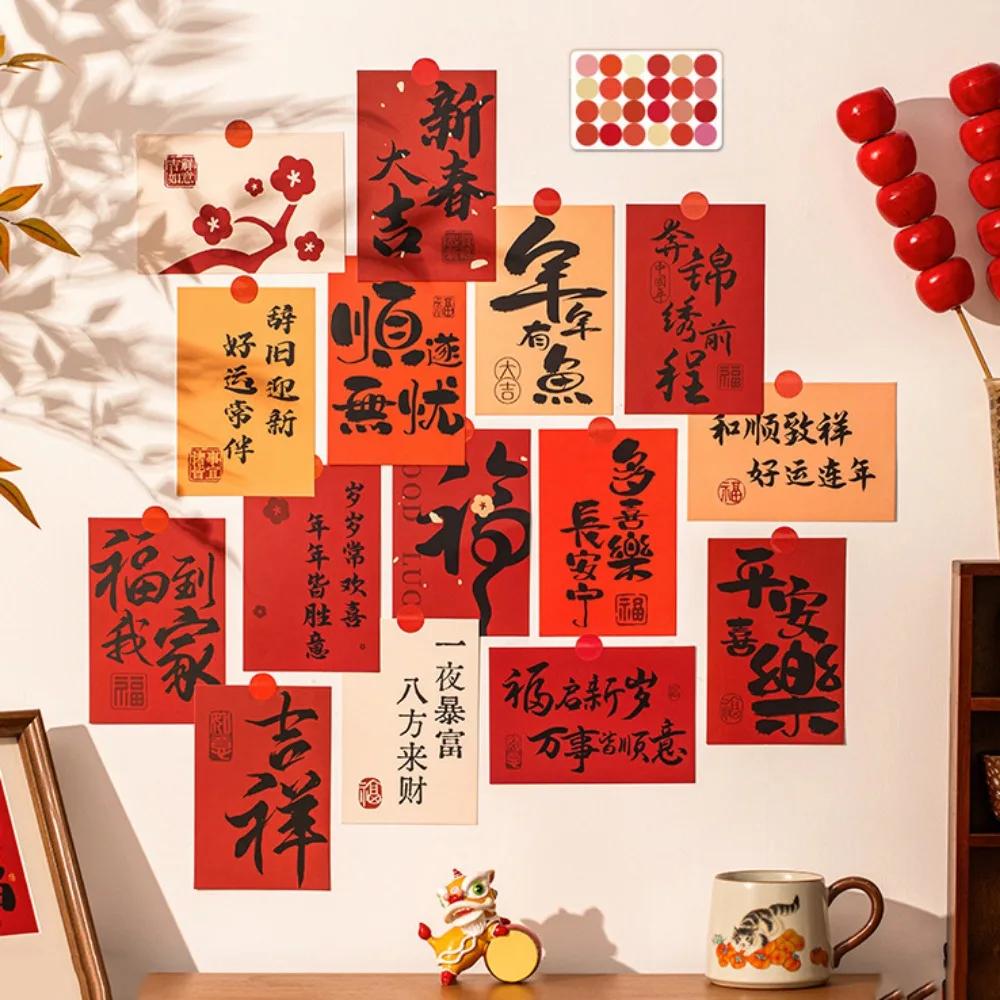 新春
大吉
吉祥
如意
年年
有魚
大吉
奔锦
绣前
程
中國年
福
辞旧迎新
好运常伴
順遂
無忧
福
和顺致祥
好运连年
福
岁岁常欢喜
年年皆胜意
福
OOD LUC
多喜樂
長安宁
福
福到
我家
福
平安
喜樂
福
吉祥
如意
一夜暴富
八方来财
福
福启新岁
万事皆顺意